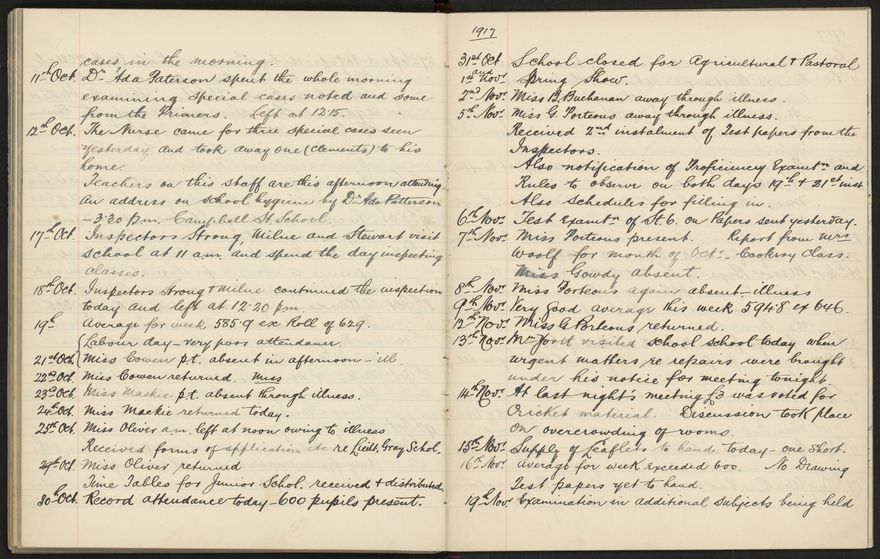 cases in the morning.
11th Oct. Dr Ada Paterson spent the whole morning
examining special cases noted and some
from the Primers. Left at 12.15.
12th Oct. The Nurse came for three special cases seen
yesterday, and took away one (Clements) to his
home.
Teachers on this staff are this afternoon attending
an address on school hygiene by Dr Ada Patterson
- 3.20 p.m. Campbell St. School.
17th Oct. Inspectors Strong, Milne and Stewart visit
school at 11 a.m. and spend the day inspecting
classes.
18th Oct. Inspectors Strong & Milne continued the inspection
today and left at 12.20 p.m.
19th Average for week 585.9 ex Roll of 629.
Labour day - very poor attendance.
21st Oct. Miss Cowen p.t. absent in afternoon - ill.
22nd Oct. Miss Cowen returned. Miss
23rd Oct. Miss Mackie p.t. absent through illness.
24th Oct. Miss Mackie returned today.
25th Oct. Miss Oliver a.m. left at noon owing to illness
Received forms of application etc re Lieut. Gray Schol.
29th Oct Miss Oliver returned
Time Tables for Junior Schol. received & distributed.
30th Oct. Record attendance today - 600 pupils present.
1917
31st Oct School closed for Agricultural & Pastoral
1st Nov. Spring Show.
2nd Nov. Miss B. Buchanan away through illness.
5th Nov. Miss G. Porteous away through illness.
Received 2nd instalment of Test papers from the
Inspectors.
Also notification of Proficiency Examtn and
Rules to observe on both days 19th & 21st inst
Also schedules for filling in.
6th Nov. Test Examtn of St 6. on Papers sent yesterday.
7th Nov. Miss Porteous present. Report from Mrs
Woolf for month of Oct. Cookery Class.
Miss Gowdy absent.
8th Nov. Miss Porteous again absent - illness
9th Nov. Very good average this week 594.8 ex 646.
12th Nov. Miss G Porteous returned.
13th Nov. Mr visited school school today when
urgent matters re repairs were brought
under his notice for meeting tonight
14th Nov. At last night's meeting £3 was voted for
Cricket material. Discussion took place
on overcrowding of rooms.
15th Nov. Supply of Leaflets to hand today - one short.
16th Nov. average for week exceeded 600. No Drawing
Test papers yet to hand.
19th Nov. Examination in additional subjects being held